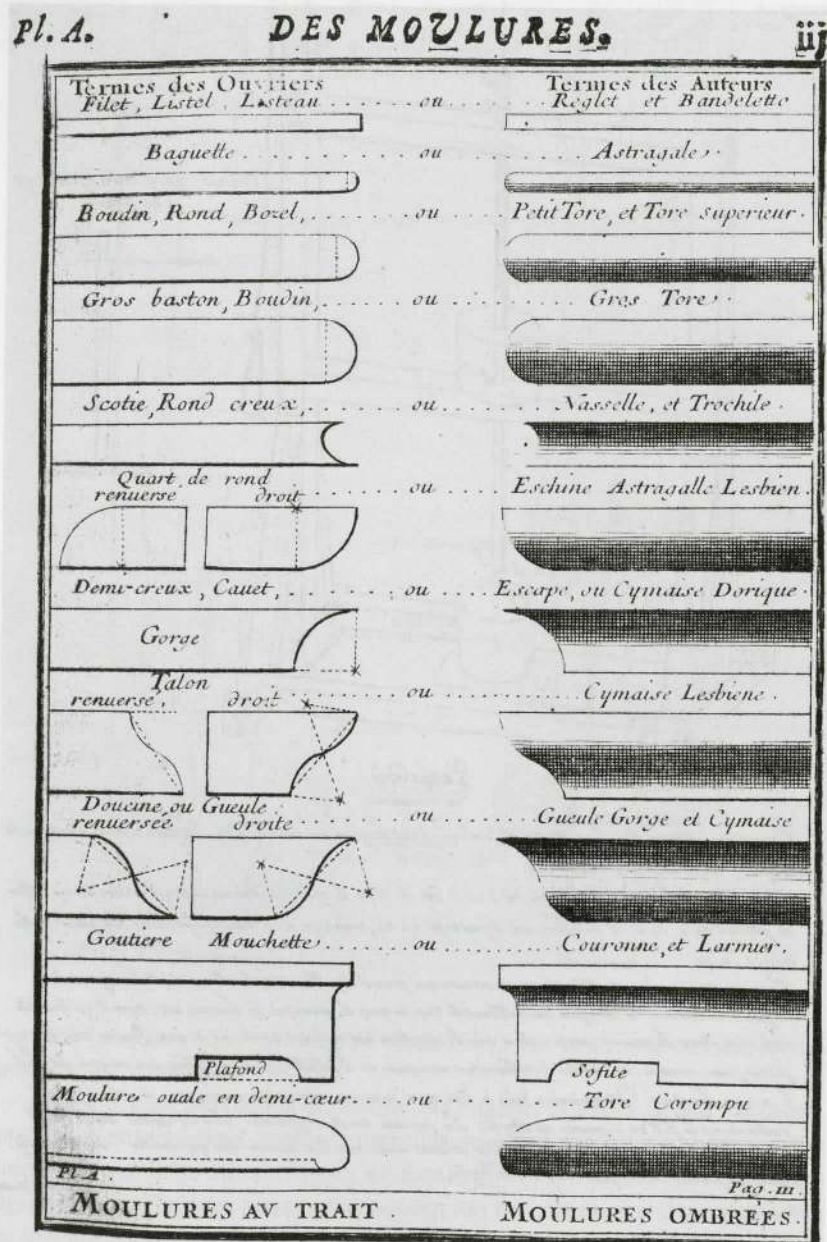 Pl. A. DES MOULURES. iij
Termes des Ouvriers Termes des Auteurs
Filet, Listel, Listeau ou Reglet et Bandelette
Baguette ou Astragale
Boudin, Rond, Bozel, ou Petit Tore, et Tore superieur.
Gros baston, Boudin, ou Gros Tore
Scotie, Rond creux, ou Nasselle, et Trochile
Quart de rond
renuerse droit ou Eschine Astragalle Lesbien.
Demi-creux, Cauet, ou Escape, ou Cymaise Dorique.
Gorge
Talon
renuerse, droit ou Cymaise Lesbiene.
Doucine ou Gueule
renuersée droite ou Gueule Gorge et Cymaise
Goutiere Mouchette ou Couronne, et Larmier.
Plafond Sofite
Moulure ouale en demi-cœur ou Tore Corompu
Pl. A Pag. iii.
MOULURES AV TRAIT MOULURES OMBRÉES.